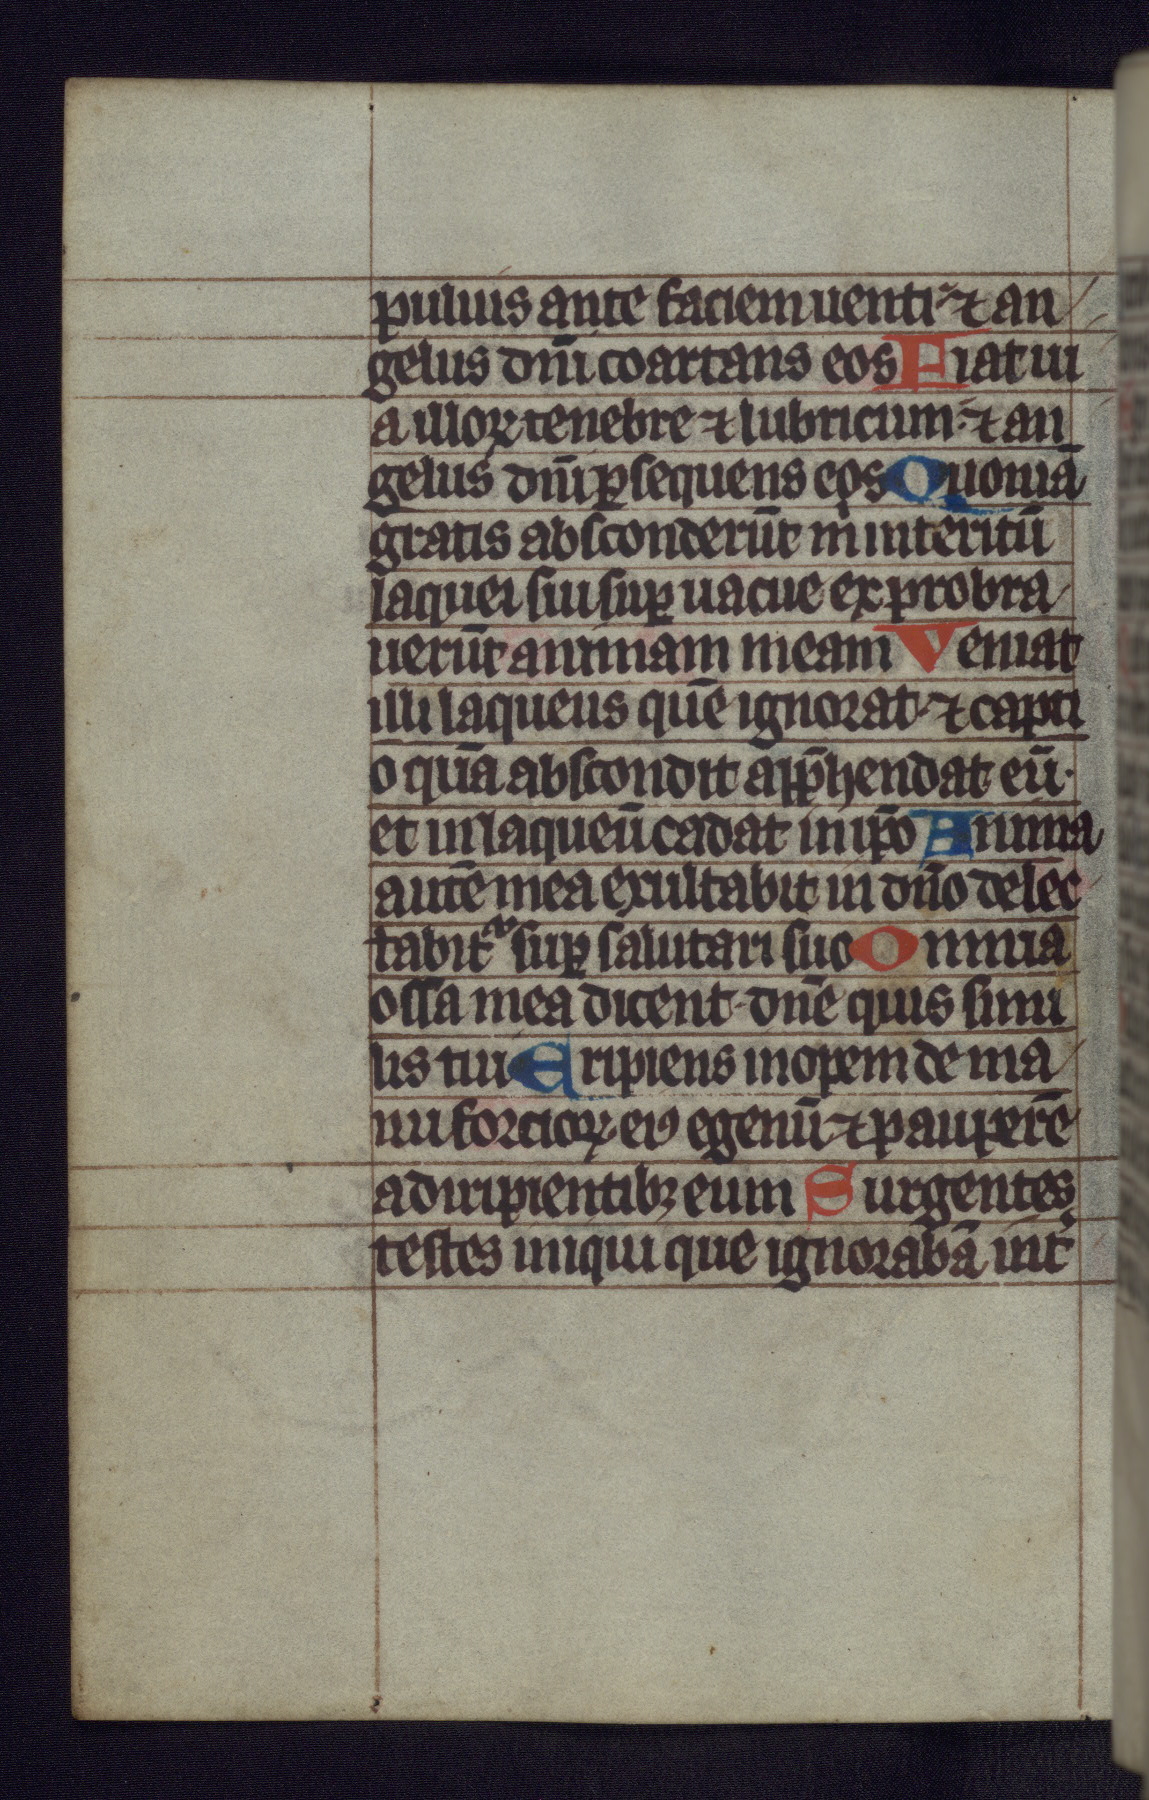 puluis ante faciem uenti· ⁊ an
gelus dnī coartans eos Fiat ui
a illoꝝ tenebre ⁊ lubricum· ⁊ an
gelus dnī ꝑsequens eos Quoniā
gratis absconderūt m̄ interitū
laquei sui suꝑ uacue exprobra
uerūt animam meam Veniat
illi laqueus quē ignorat· ⁊ capti
o quā abscondit app̄hendat eū·
et in laqueū cadat in ip̄o Anima
autē mea exultabit in dn̄o delec
tabitᷣ suꝑ salutari suo Omnia
ossa mea dicent· dn̄e quis simi
lis tui Eripiens inopem de ma
nu forcioꝝ eiꝰ egenū ⁊ pauperē
adiripientibꝫ eum Surgentes
testes iniqui que ignorabā int̉